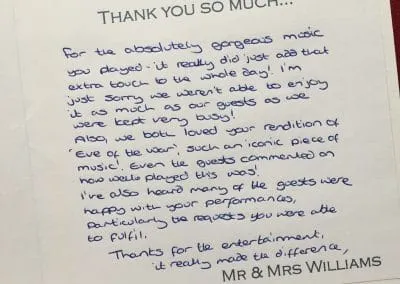 THANK YOU SO MUCH...
For the absolutely gorgeous music
you played - it really did just add that
extra touch to the whole day! I'm
just sorry we weren't able to enjoy
it as much as our guests as we
were kept very busy!
Also, we both loved your rendition of
'Eve of the War', such an iconic piece of
music! Even the guests commented on
how well played this was!
I've also heard many of the guests were
happy with your performances,
particularly the requests you were able
to fulfil.
Thanks for the entertainment,
it really made the difference,
MR & MRS WILLIAMS